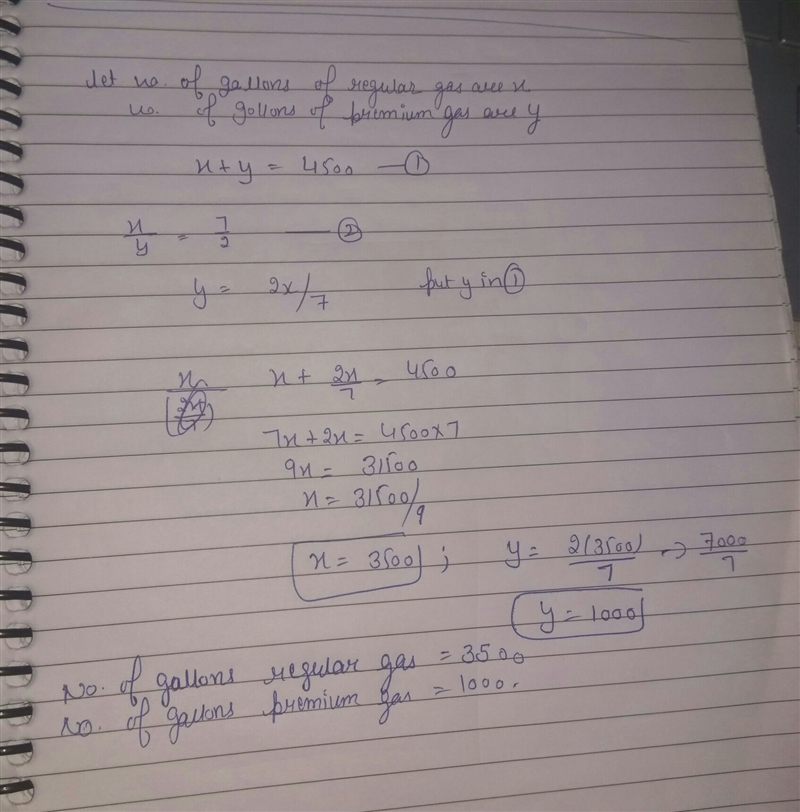 Let no. of gallons of regular gas are x
no. of gollons of premium gas are y
x + y = 4500 — ①
x/y = 7/2 — ②
y = 2x/7 put y in ①
x + 2x/7 = 4500
7x + 2x = 4500×7
9x = 31500
x = 31500/9
x = 3500 ; y = 2(3500)/7 → 7000/7
y = 1000
No. of gallons regular gas = 3500
No. of gallons premium gas = 1000.